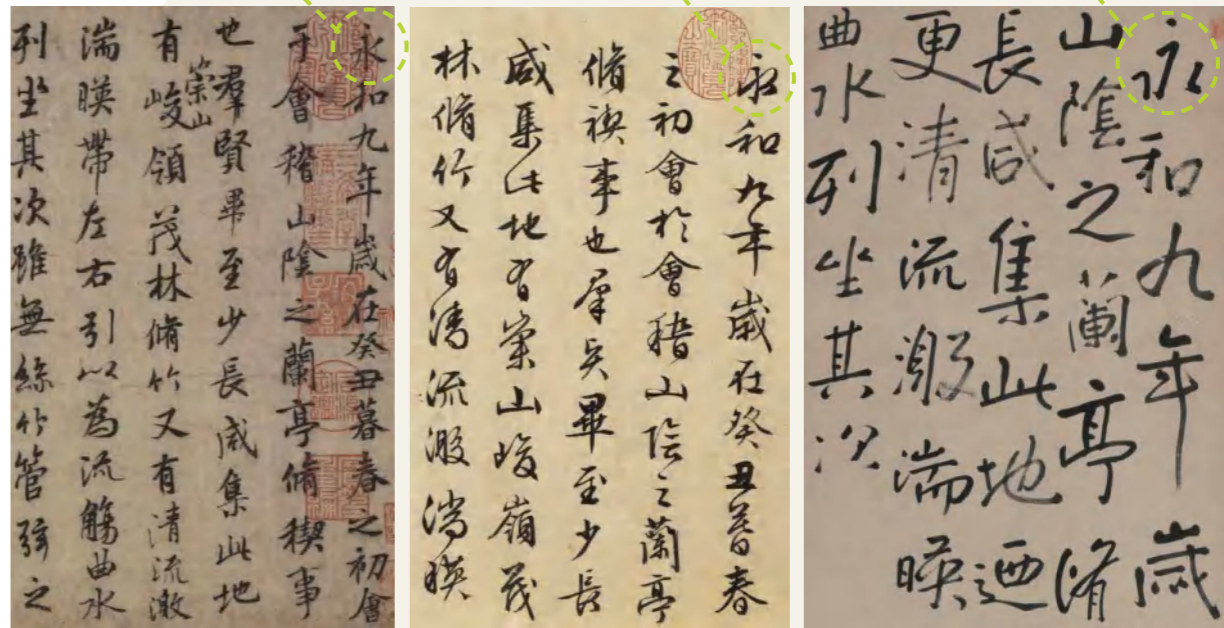 永和九年歲在癸丑暮春之初會
于會稽山陰之蘭亭脩稧事
也羣賢畢至少長咸集此地
有崇山峻領茂林脩竹又有清流激
湍暎帶左右引以為流觴曲水
列坐其次雖無絲竹管弦之
永和九年歲在癸丑暮春
之初會於會稽山陰之蘭亭
脩禊事也羣賢畢至少長
咸集此地有崇山峻嶺茂
林脩竹又有清流激湍暎
永和九年歲
山陰之蘭亭脩
長咸集此地迺
更清流激湍暎
曲水列坐其次